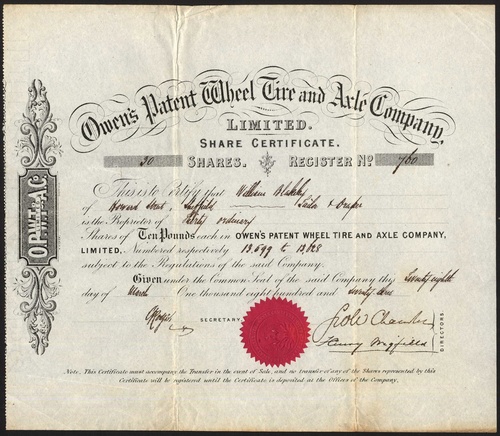 Owen's Patent Wheel Tire and Axle Company,
LIMITED.
SHARE CERTIFICATE.
30 SHARES. REGISTER No 760
This is to Certify that William Blakeley
of Howard Street Sheffield Tailor & Draper
is the Proprietor of Thirty ordinary
Shares of TEN POUNDS each in OWEN'S PATENT WHEEL TIRE AND AXLE COMPANY,
LIMITED, Numbered respectively 13,699 to 13,728
subject to the Regulations of the said Company.
Given under the Common Seal of the said Company this Twenty eighth
day of March One thousand eight hundred and seventy
SECRETARY.
Chambers
Henry
DIRECTORS.
O.P.W.T. & A.Co.
Note, This Certificate must accompany the Transfer in the event of Sale, and no transfer of any of the Shares represented by this
Certificate will be registered until the Certificate is deposited at the Offices of the Company.